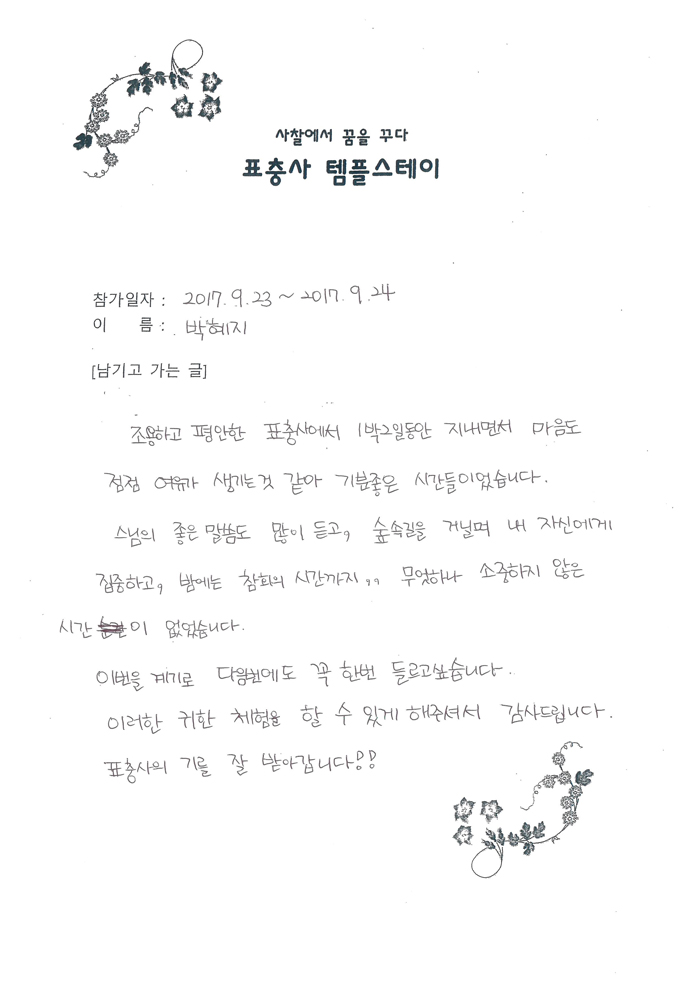 사찰에서 꿈을 꾸다
표충사 템플스테이
참가일자 : 2017. 9. 23 ~ 2017. 9. 24
이 름 : 박혜지
[남기고 가는 글]
조용하고 평안한 표충사에서 1박2일동안 지내면서 마음도
점점 여유가 생기는것 같아 기분좋은 시간들이었습니다.
스님의 좋은 말씀도 많이 듣고, 숲속길을 거닐며 내 자신에게
집중하고, 밤에는 참회의 시간까지,, 무엇하나 소중하지 않은
시간 이 없었습니다.
이번을 계기로 다음번에도 꼭 한번 들르고싶습니다.
이러한 귀한 체험을 할 수 있게 해주셔서 감사드립니다.
표충사의 기를 잘 받아갑니다!!